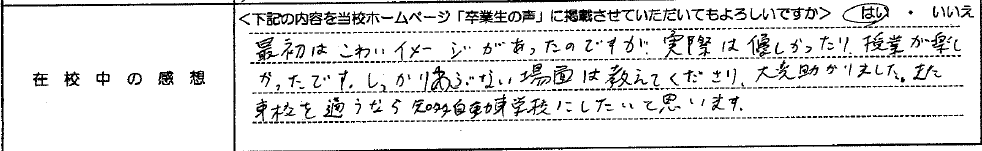 <下記の内容を当校ホームページ「卒業生の声」に掲載させていただいてもよろしいですか> はい ・ いいえ
在校中の感想
最初はこわいイメージがあったのですが、実際は優しかったり、授業が楽し
かったです。しっかりあぶない場面は教えてくださり、大変助かりました。また
車校を通うなら知多自動車学校にしたいと思います。